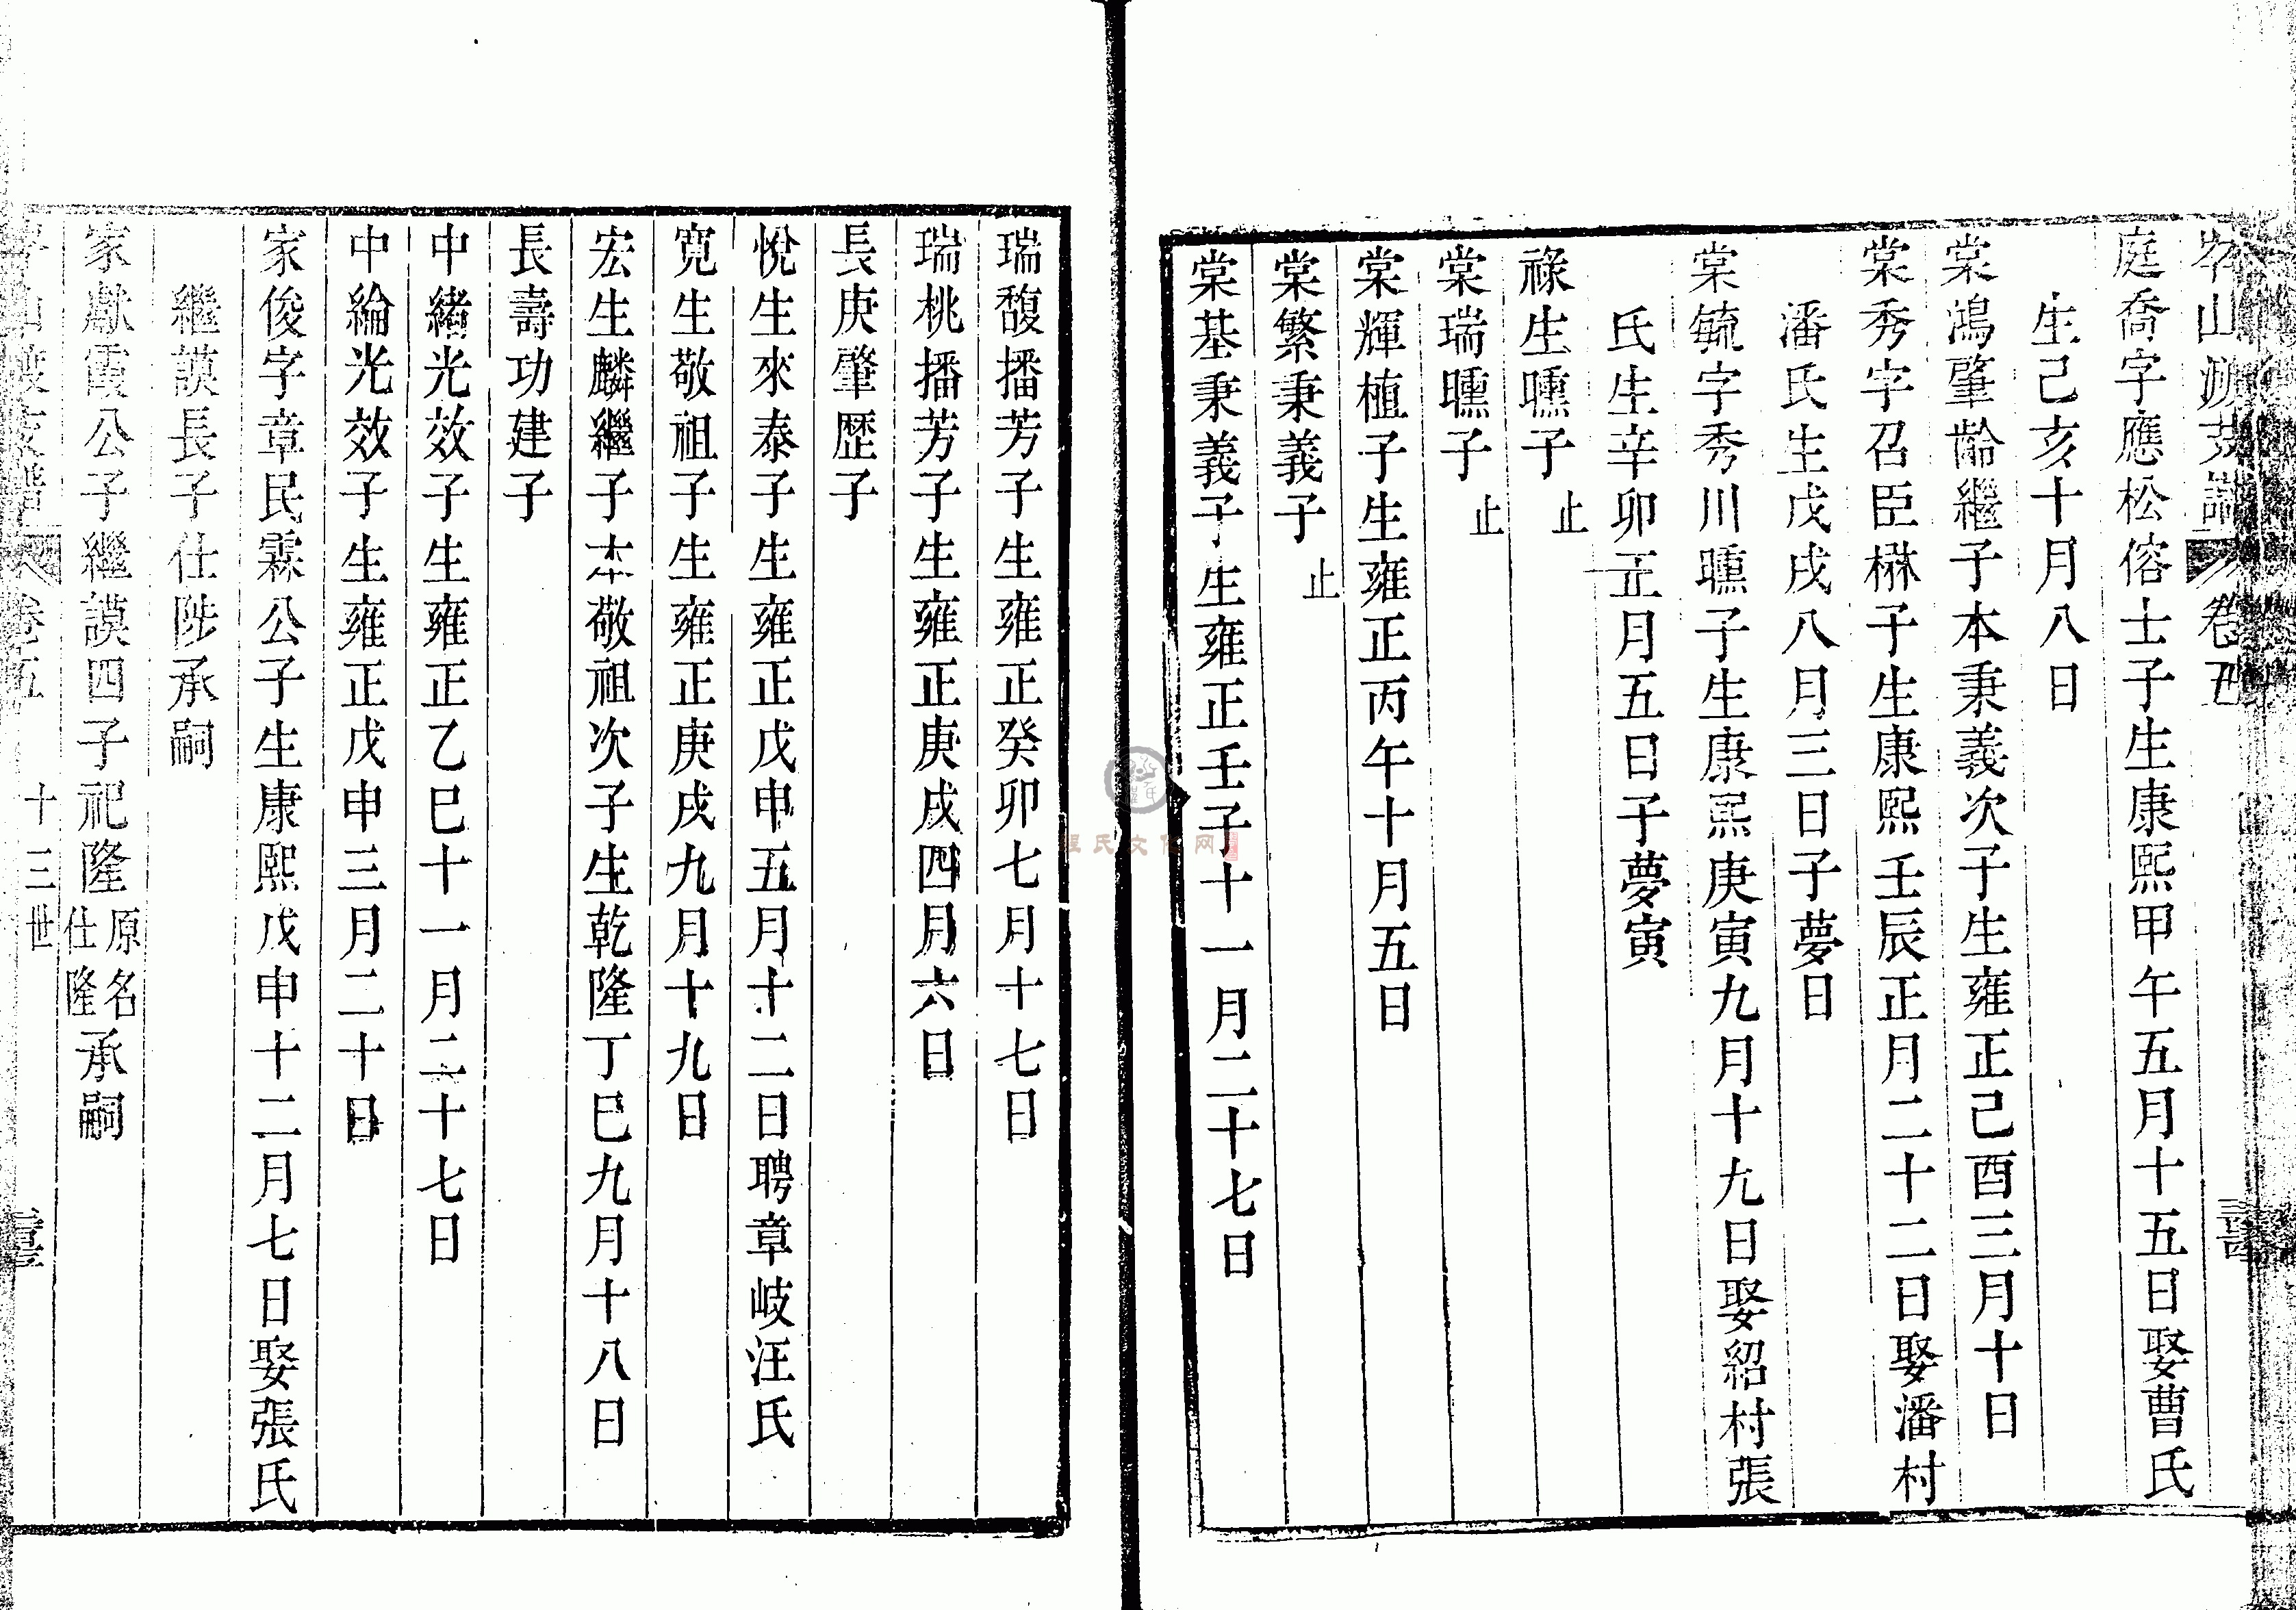 岑山渡支譜 卷五
庭喬字應松傛士子生康熙甲午五月十五日娶曹氏
生己亥十月八日
棠鴻肇齡繼子本秉義次子生雍正己酉三月十日
棠秀字召臣楙子生康熙壬辰正月二十二日娶潘村
潘氏生戊戌八月三日子夢日
棠毓字秀川曛子生康熙庚寅九月十九日娶紹村張
氏生辛卯正月五日子夢寅
祿生曛子 止
棠瑞曛子 止
棠輝植子生雍正丙午十月五日
棠繁秉義子 止
棠基秉義子生雍正壬子十一月二十七日
瑞馥播芳子生雍正癸卯七月十七日
瑞桃播芳子生雍正庚戌四月六日
長庚肇歷子
悅生來泰子生雍正戊申五月十二日聘章岐汪氏
寬生敬祖子生雍正庚戌九月十九日
宏生麟繼子本敬祖次子生乾隆丁巳九月十八日
長壽功建子
中緒光效子生雍正乙巳十一月二十七日
中綸光效子生雍正戊申三月二十日
家俊字章民霖公子生康熙戊申十二月七日娶張氏
繼謨長子仕陟承嗣
家獻霞公子繼謨四子祀隆原名仕隆承嗣
岑山渡支譜 卷五 十三世
程氏文化网